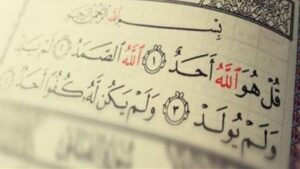 بِسْمِ اللَّهِ الرَّحْمَٰنِ الرَّحِيمِ
قُلْ هُوَ اللَّهُ أَحَدٌ ١ اللَّهُ الصَّمَدُ ٢ لَمْ يَلِدْ
وَلَمْ يُولَدْ ٣ وَلَمْ يَكُن لَّهُ كُفُوًا أَحَدٌ